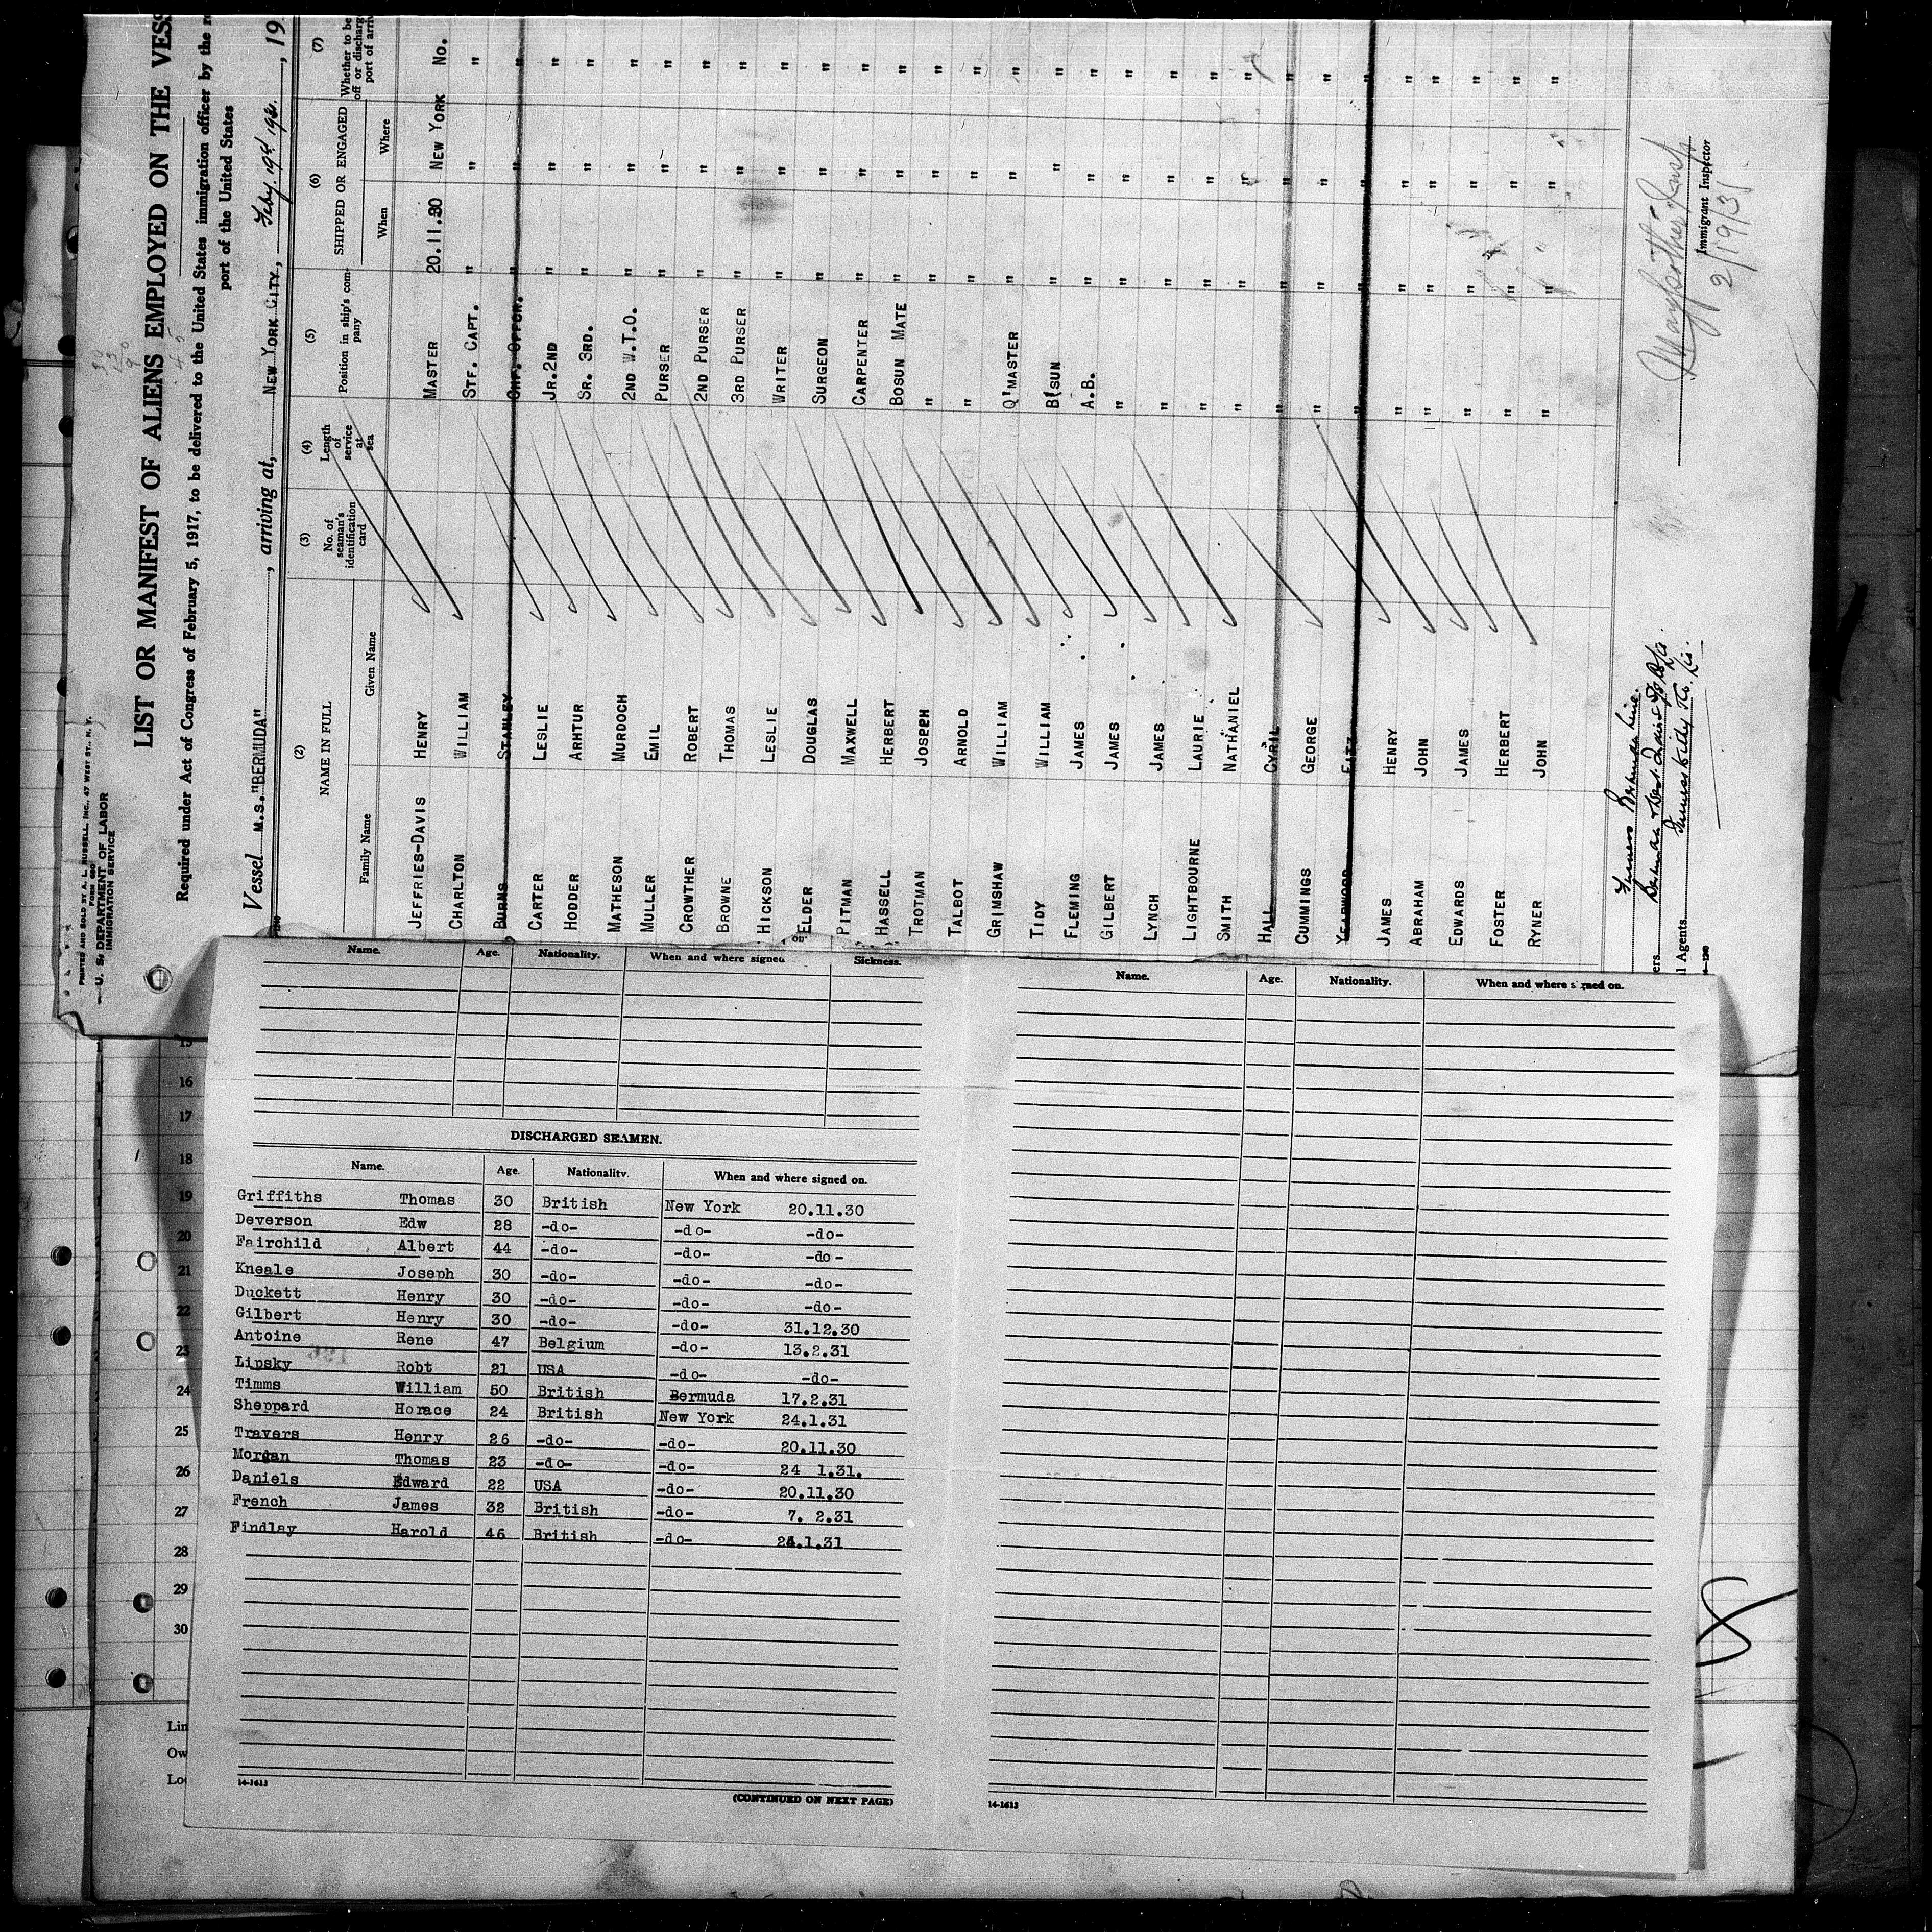 PRINTED AND SOLD BY A. L. RUSSELL, INC., 47 WEST ST., N. Y.
FORM 680
U. S. DEPARTMENT OF LABOR
IMMIGRATION SERVICE
LIST OR MANIFEST OF ALIENS EMPLOYED ON THE VESS
Required under Act of Congress of February 5, 1917, to be delivered to the United States immigration officer by the r
port of the United States
Vessel M.S."BERMUDA", arriving at, NEW YORK CITY, Feby. 19th 1931, 19
(2) (3) (4) (5) (6) (7)
NAME IN FULL No. of seaman's identification card Length of service at sea Position in ship's company SHIPPED OR ENGAGED Whether to be off or discharg port of arri
Family Name Given Name When Where
JEFFRIES-DAVIS HENRY MASTER 20.11.30 NEW YORK No.
CHARLTON WILLIAM STF. CAPT. " " "
BURNS STANLEY CHF. OFFCR. " " "
CARTER LESLIE JR.2ND " " "
HODDER ARHTUR SR. 3RD. " " "
MATHESON MURDOCH 2ND W.T.O. " " "
MULLER EMIL PURSER " " "
CROWTHER ROBERT 2ND PURSER " " "
BROWNE THOMAS 3RD PURSER " " "
HICKSON LESLIE WRITER " " "
ELDER DOUGLAS SURGEON " " "
PITMAN MAXWELL CARPENTER " " "
HASSELL HERBERT BOSUN MATE " " "
TROTMAN JOSEPH " " " "
TALBOT ARNOLD " " " "
GRIMSHAW WILLIAM Q'MASTER " " "
TIDY WILLIAM B(SUN " " "
FLEMING JAMES A.B. " " "
GILBERT JAMES " " " "
LYNCH JAMES " " " "
LIGHTBOURNE LAURIE " " " "
SMITH NATHANIEL " " " "
HALL CYRIL " " " "
CUMMINGS GEORGE " " " "
YEARWOOD FITZ " " " "
JAMES HENRY " " " "
ABRAHAM JOHN " " " "
EDWARDS JAMES " " " "
FOSTER HERBERT " " " "
RYNER JOHN " " " "
Furness Bermuda Line.
ers
l Agents Furness Withy & Co. Ltd.
Immigrant Inspector
2/19/31
Name. Age. Nationality. When and where signed Sickness.
DISCHARGED SEAMEN.
Name. Age. Nationality. When and where signed on.
Griffiths Thomas 30 British New York 20.11.30
Deverson Edw 28 -do- -do- -do-
Fairchild Albert 44 -do- -do- -do-
Kneale Joseph 30 -do- -do- -do-
Duckett Henry 30 -do- -do- -do-
Gilbert Henry 30 -do- -do- 31.12.30
Antoine Rene 47 Belgium -do- 13.2.31
Lipsky Robt 21 USA -do- -do-
Timms William 50 British Bermuda 17.2.31
Sheppard Horace 24 British New York 24.1.31
Travers Henry 26 -do- -do- 20.11.30
Morgan Thomas 23 -do- -do- 24 1.31.
Daniels Edward 22 USA -do- 20.11.30
French James 32 British -do- 7. 2.31
Findlay Harold 46 British -do- 24.1.31
14-1613
(CONTINUED ON NEXT PAGE)
Name. Age. Nationality. When and where signed on.
14-1613
15
16
17
18
19
20
21
22
23
24
25
26
27
28
29
30
Lin
Ow
Lo